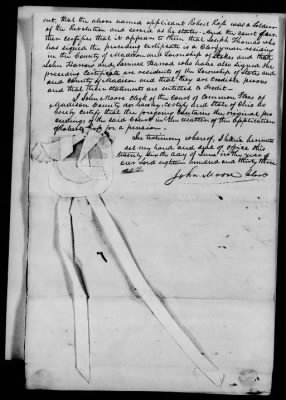 ent, that the above named applicant Robert was a Soldier
of the Revolution and served as he states. And the court fur
ther certifies that it appears to them that Thomas who
has signed the preceding certificate is a Clergyman residing
in the County of Madison and Township of and that
John and Samuel Harrod who have also signed the
preceding certificate are residents of the Township of
and County of Madison and that they are credible persons
and that their statements are entitled to Credit —
I John Moore Clerk of the Court of Common Pleas of
Madison County and State of Ohio do
certify that the foregoing contains the original pro
ceedings of the said Court in the matter of the application
of Robert for a pension.
In testimony whereof, I have hereunto
set my hand and seal of office this
day of June in the year of
our Lord eighteen hundred and thirty three
John Moore Clerk